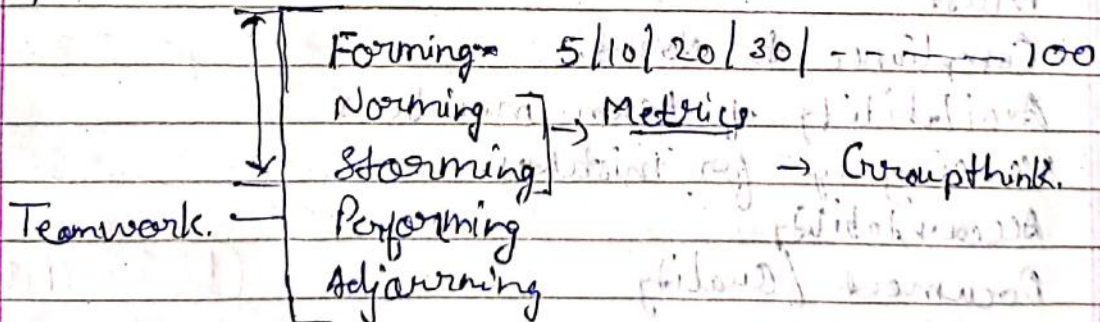 Forming 5/10/20/30/ - - - 100
Norming
→ Metrics
Storming
→ Groupthink.
Teamwork. Performing
Adjourning